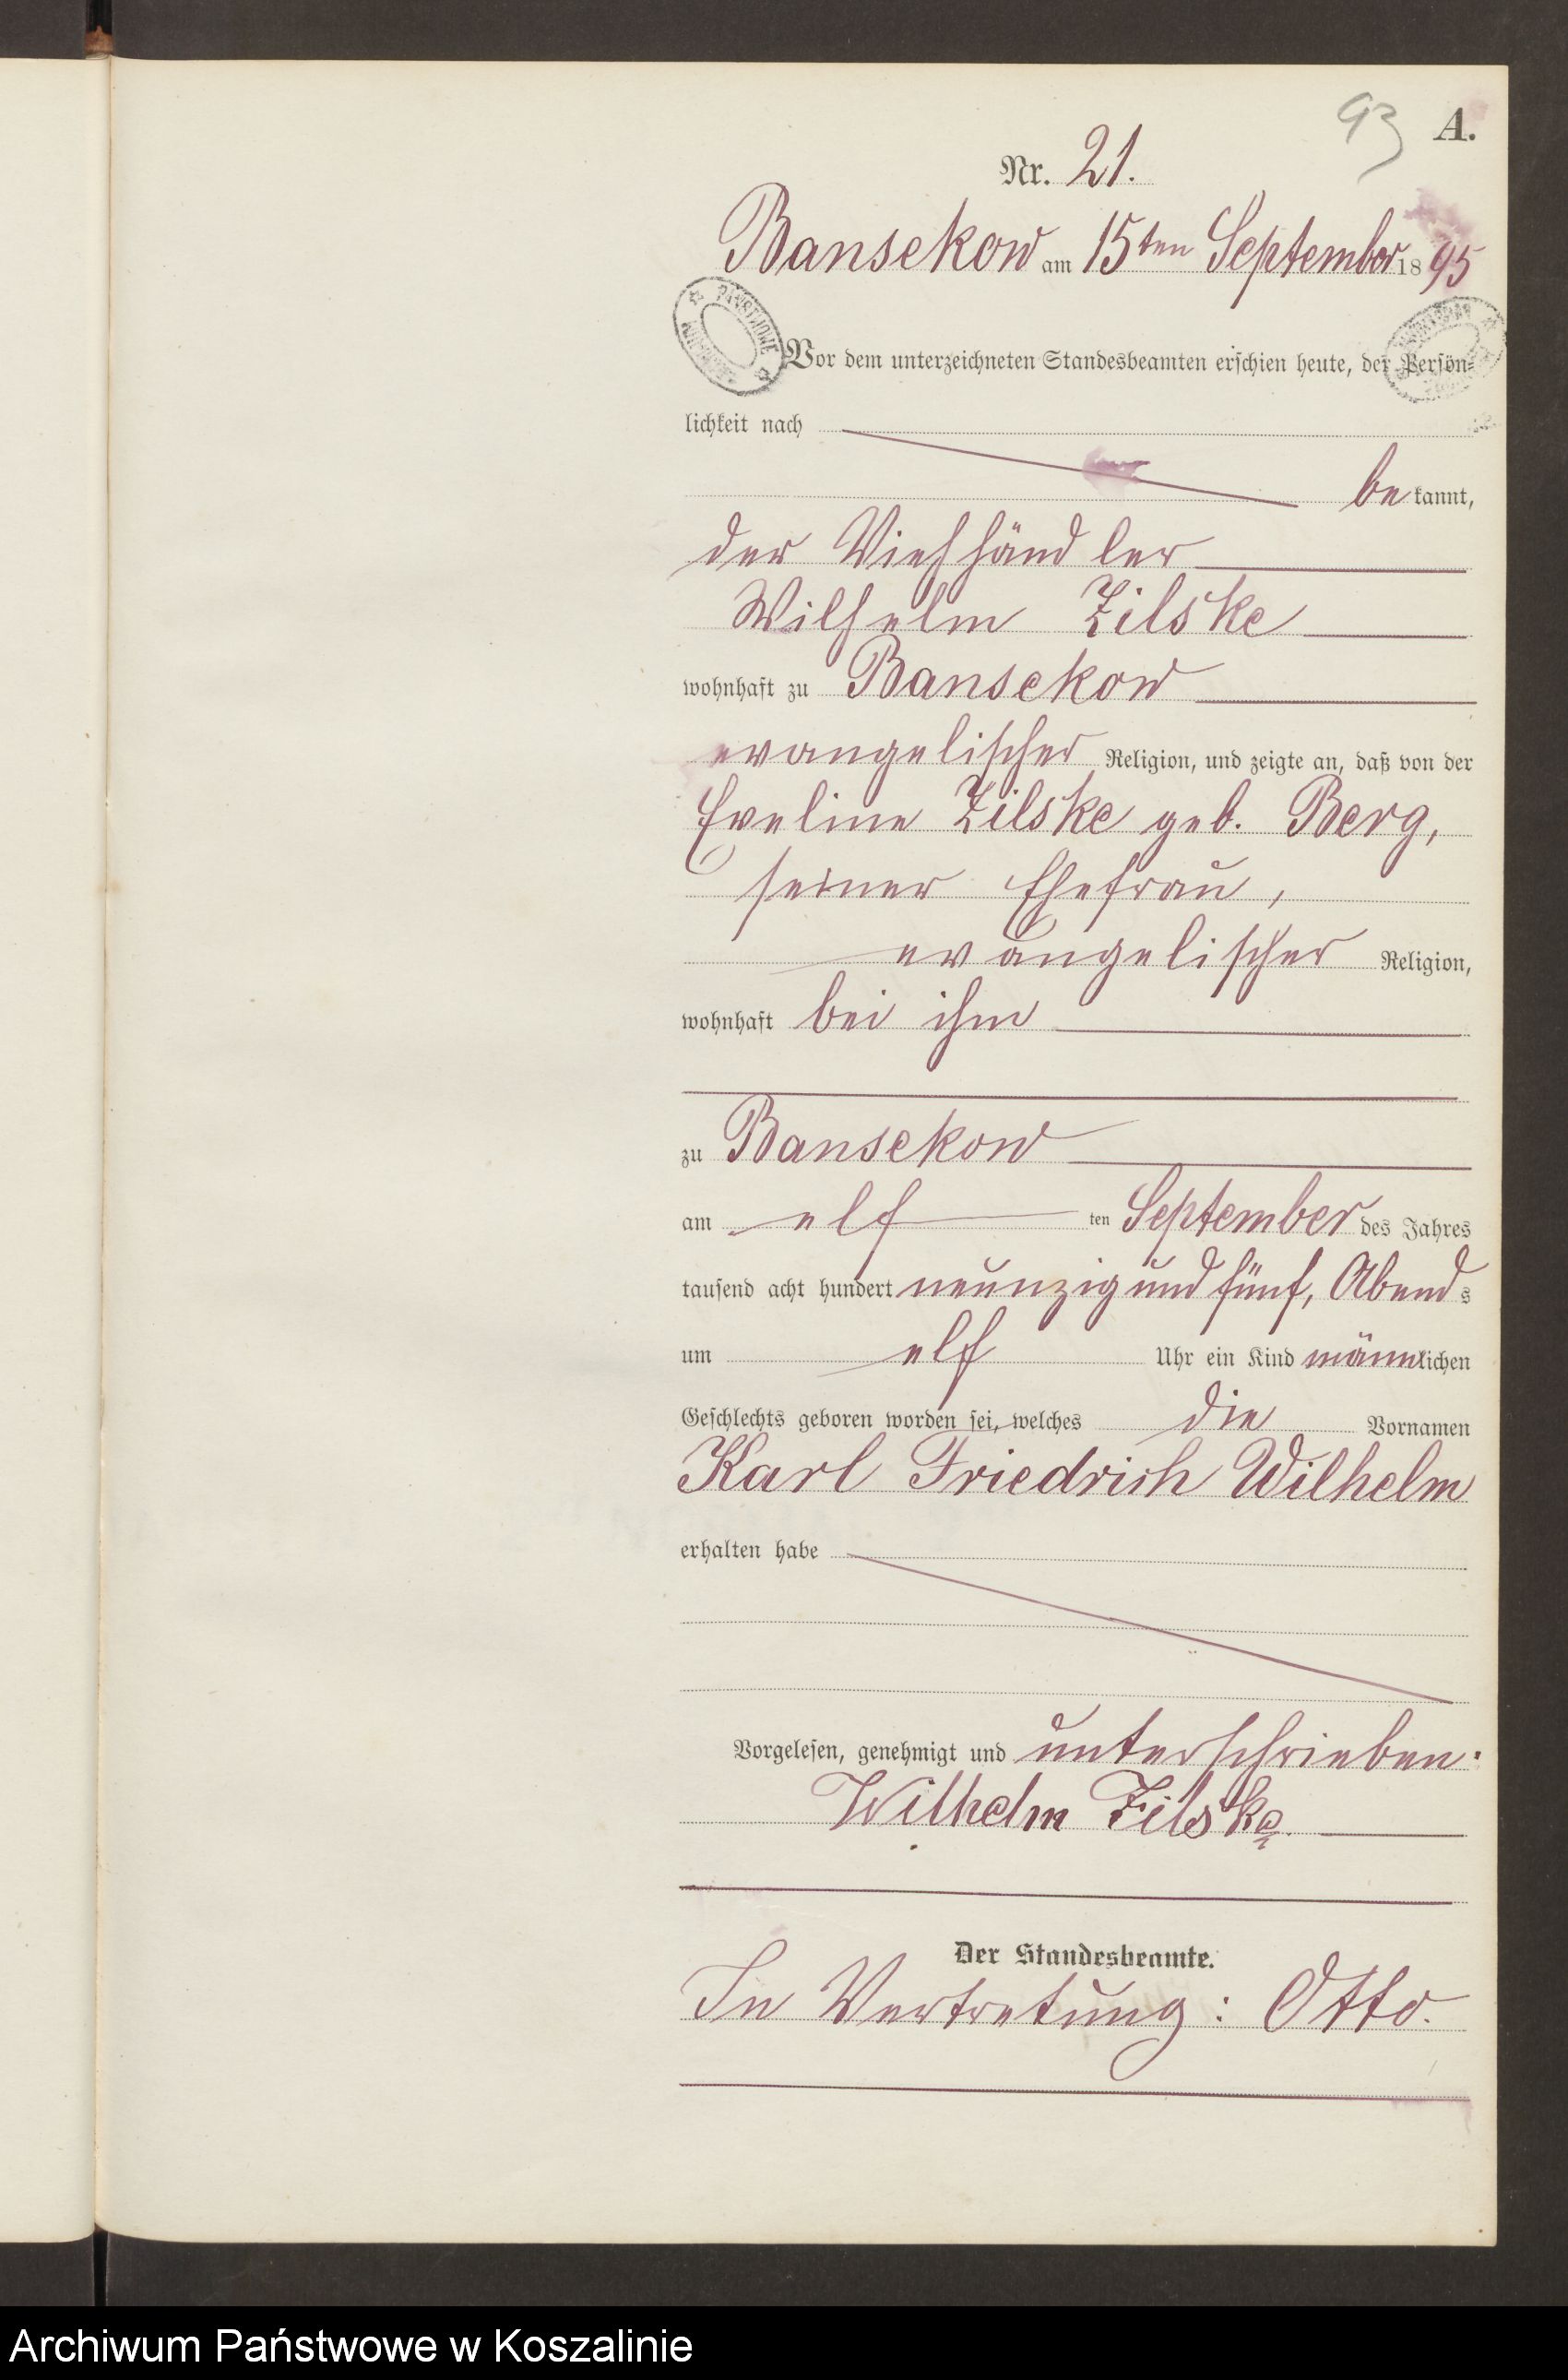 93 A.
Nr. 21.
Bansekow am 15ten September 1895
PAŃSTWOWE
Vor dem unterzeichneten Standesbeamten erschien heute, der Persön-
lichkeit nach
be kannt,
der Viehhändler
Wilhelm Zilske
wohnhaft zu Bansekow
evangelischer Religion, und zeigte an, daß von der
Eveline Zilske geb. Berg,
seiner Ehefrau,
evangelischer Religion,
wohnhaft bei ihm
zu Bansekow
am elf ten September des Jahres
tausend acht hundert neunzig und fünf, Abend s
um elf Uhr ein Kind männlichen
Geschlechts geboren worden sei, welches die Vornamen
Karl Friedrich Wilhelm
erhalten habe
Vorgelesen, genehmigt und unterschrieben:
Wilhelm Zilske.
Der Standesbeamte.
In Vertretung: Otto.
Archiwum Państwowe w Koszalinie